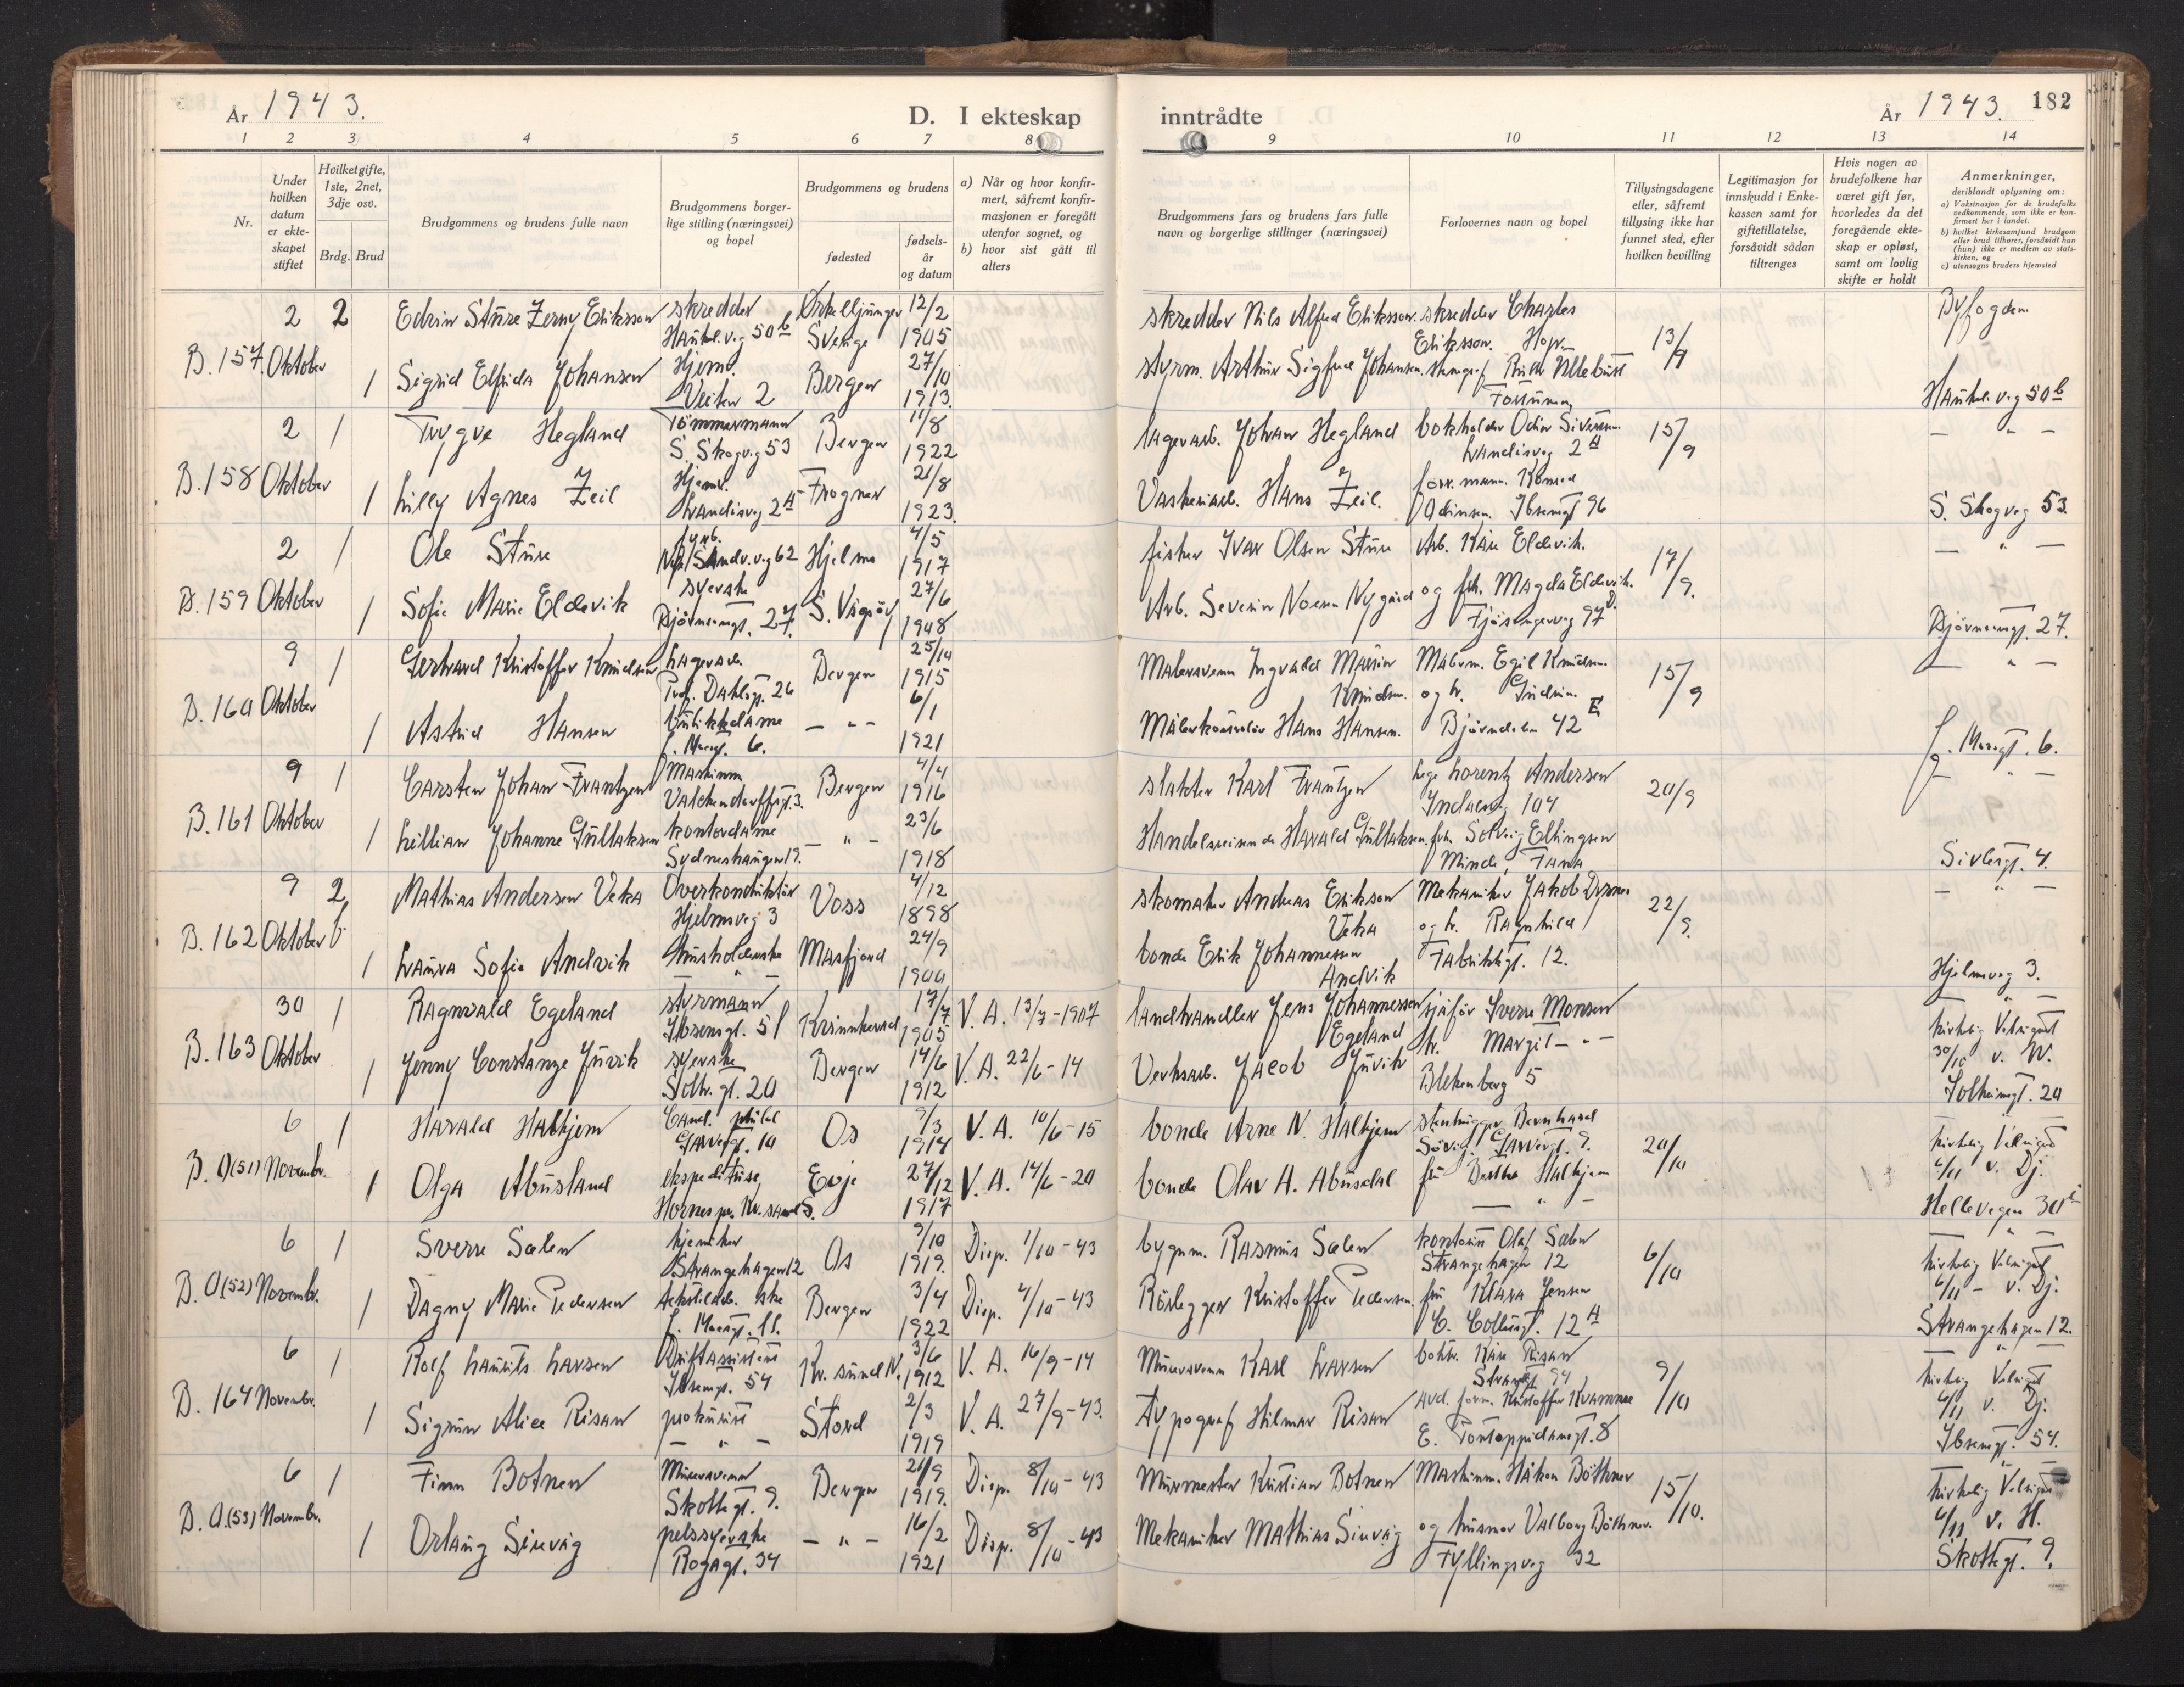 År 1943.
D. I ekteskap inntrådte
År 1943. 182
1 2 3 4 5 6 7 8 9 10 11 12 13 14
Nr.
Under hvilken datum er ekteskapet stiftet
Hvilket gifte, 1ste, 2net, 3dje osv.
Brdg. Brud
Brudgommens og brudens fulle navn
Brudgommens borgerlige stilling (næringsvei) og bopel
Brudgommens og brudens
fødested
fødselsår og datum
a) Når og hvor konfirmert, såfremt konfirmasjonen er foregått utenfor sognet, og
b) hvor sist gått til alters
Brudgommens fars og brudens fars fulle navn og borgerlige stillinger (næringsvei)
Forlovernes navn og bopel
Tillysingsdagene eller, såfremt tillysing ikke har funnet sted, efter hvilken bevilling
Legitimasjon for innskudd i Enkekassen samt for giftetillatelse, forsåvidt sådan tiltrenges
Hvis nogen av brudefolkene har været gift før, hvorledes da det foregående ekteskap er opløst, samt om lovlig skifte er holdt
Anmerkninger,
deriblandt oplysning om:
a) Vaksinasjon for de brudefolks vedkommende, som ikke er konfirmert her i landet.
b) hvilket kirkesamfund brudgom eller brud tilhører, forsåvidt han (hun) ikke er medlem av statskirken, og
c) utensogns bruders hjemsted
B. 157. 2 Oktober 2 Edvin Sture Zerny Eriksson skredder Haukel.vg 50b Ørkelljunger Sverige 12/2 1905 skredder Nils Alfred Eriksson. skredder Charles Eriksson. Hop. 13/9 Byfogden
1 Sigrid Elfrida Johansen Hjemv. Veiten 2 Bergen 27/10 1913. styrm. Arthur Sigfred Johansen. Haukel. vg 50b
B. 158 2 Oktober 1 Trygve Hegland Tömmermann S. Skogvg 53 Bergen 11/8 1922 lagerarb. Johan Hegland bokholder 15/9 - " -
1 Lilly Agnes Zeil Hjemv. Frogner 21/8 1923. Vaskeriarb. Hans Zeil. Ibsensgt 96 S. Skogveg 53.
B. 159 2 Oktober 1 Ole Sture fyrb. Hjelme 4/5 1917 fisker Ivar Olsen Sture Arb. Kåre Eldevik. 17/9. - " -
1 Sofie Marie Eldevik syerske Bjørnsonsgt. 27. S. Vågsöy 27/6 1908 Arb. Severin Noem Nygård og frk. Magda Eldevik. Fjösangervg 97 Bjørnsonsgt. 27.
B. 160 9 Oktober 1 Gerhard Kristoffer Knudsen Lagerarb. Prof. Dahlsgt. 26 Bergen 25/10 1915 Malersvenn Ingvald Marin Knudsen. Malerm. Egil Knudsen. og hr. Gudrun. 15/9 - " -
1 Astrid Hansen butikkdame - " - 6/1 1921 Målerkontrolör Hans Hansen. Björndalen 42 E. Mossgt. 6.
B. 161 9 Oktober 1 Carsten Johan Frantzen Maskinm Valckendorffsgt. 3. Bergen 4/4 1916 slakter Karl Frantzen lege Lorentz Andersen Indalsvg 104 20/9 - " -
1 Lillian Johanne Gullaksen kontordame Sydneshaugen 19. - " - 23/6 1918 Handelsreisende Harald Gullaksen. frk. Solveig Ellingsen Minde, Fana Sivlesgt. 4.
B. 162 9 Oktober 2 b Mathias Andersen Veka Overkonduktör Hjelmsvg 3 Voss 4/12 1898 skomaker Andreas Erikson Veka Mekaniker Jakob Dyrnes og hr. Ragnhild 22/9. - " -
1 Laura Sofie Andvik husholderske - " - Masfjord 24/9 1900. bonde Erik Johannessen Andvik Fabrikkgt. 12. Hjelmsveg 3.
B. 163 30 Oktober 1 Ragnvald Egeland styrmann Ibsensgt. 51 Kvinnherad 17/7 1905 V. A. 13/7-1907 landhandler Jens Johannessen Egeland sjåför Sverre Monsen fr. Margit - " - - " -
1 Jenny Constanze Juvik syerske Solh. gt. 20 Bergen 14/6 1912 V. A. 22/6-14 Verksarb. Jacob Juvik Blekenberg 5 kirkelig Velsignet 30/10 v. W. Solheimsgt. 20
B. 0(51) 6 Novembr. 1 Harald Halhjem Cand. philol Garvergt. 10 Os 9/3 1914 V. A. 10/6-15 bonde Arne N. Halhjem stenhugger Bernhard Sövig. Garvergt. 9. 20/10 kirkelig Velsignet 6/11 v. Dj.
1 Olga Abusland ekspeditrise, Hornes pr. Kr.sand S. Evje 27/12 1917 V. A. 14/6-20 bonde Olav A. Abusdal fru Bertha Halhjem - " - Hellevegen 30
B. 0(52) 6 Novembr. 1 Sverre Sælen kjemiker Strangehagen 12 Os 9/10 1919. Disp. 1/10-43 bygnm. Rasmus Sælen kontorist Olaf Sælen Strangehagen 12 6/10 - " - kirkelig Velsignet 6/11 - v. Dj.
1 Dagny Marie Pedersen tekstilarb.ske Bergen 3/4 1922 Disp. 4/10-43 Rörlegger Kristoffer Pedersen. fru Klara Jensen 12 A Strangehagen 12.
B. 164 6 Novembr. 1 Rolf Laurits Larsen Driftassistent Ibsensgt. 54 Kr. sund N. 3/6 1912 V. A. 16/9-14 Murersvenn Karl Larsen bokh. Kåre Risan Strandgt 94 9/10 - " - kirkelig Velsignet 6/11 v. Dj.
1 Sigrun Alice Risan prokurist - " - Stord 2/3 1919 V. A. 27/9-43. Typograf Hilmar Risan avd. form. Kristoffer Kvamme E. Pontoppidansgt. 8 Ibsensgt. 54.
B. 0.(53) 6 Novembr. 1 Finn Botnen Murersvenn Skottegt. 9. Bergen 21/9 1919. Disp. 8/10-43 Murmester Kristian Botnen Maskinm. Håkon Böthner 15/10. - " - kirkelig Velsignet 6/11 v. H.
1 Orlaug Sinvåg pelssyerske Rogagt. 34 - " - 16/2 1921 Disp. 8/10-43 Mekaniker Mathias Sinvåg og husmor Valborg Böthner. Fyllingsveg 32 Skottegt. 9.